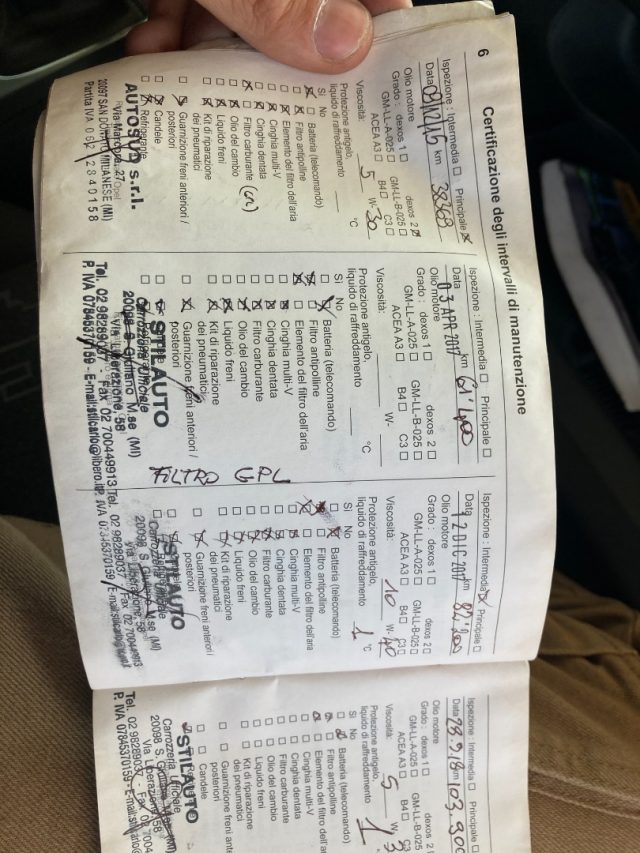 6
Certificazione degli intervalli di manutenzione
Ispezione: Intermedia Principale
Data km 38268
Olio motore
Grado: dexos 1 dexos 2
GM-LL-A-025 GM-LL-B-025
ACEA A3 B4 C3
Viscosità: 5 W- 30
Protezione antigelo,
liquido di raffreddamento °C
Sì No
Batteria (telecomando)
Filtro antipolline
Elemento del filtro dell'aria
Cinghia multi-V
Cinghia dentata
Filtro carburante
Olio del cambio
Liquido freni
Kit di riparazione
dei pneumatici
Guarnizione freni anteriori /
posteriori
Candele
Refrigerante
AUTOSUD s.r.l.
Opel
Via Marcora, 27
20097 SAN DONATO MILANESE (MI)
Partita IVA
Ispezione: Intermedia Principale
Data 03 APR 2017 km 61'400
Olio motore
Grado: dexos 1 dexos 2
GM-LL-A-025 GM-LL-B-025
ACEA A3 B4 C3
Viscosità: W-
Protezione antigelo,
liquido di raffreddamento °C
Sì No
Batteria (telecomando)
Filtro antipolline
Elemento del filtro dell'aria
Cinghia multi-V
Cinghia dentata
Filtro carburante
Olio del cambio
Liquido freni
Kit di riparazione
dei pneumatici
Guarnizione freni anteriori /
posteriori
FILTRO GPL
STILAUTO
Carrozzeria Ufficiale
20098 S. Giuliano M.se (MI)
Via Liberazione, 58
Tel. 02 98289037 - Fax 02 700449913
P. IVA 07845370159 - E-mail:stilcarlo@libero.it
Ispezione: Intermedia Principale
Data 12 DIC 2017 km
Olio motore
Grado: dexos 1 dexos 2
GM-LL-A-025 GM-LL-B-025
ACEA A3 B4 C3
Viscosità: 10 W 40
Protezione antigelo,
liquido di raffreddamento °C
Sì No
Batteria (telecomando)
Filtro antipolline
Elemento del filtro dell'aria
Cinghia multi-V
Cinghia dentata
Filtro carburante
Olio del cambio
Liquido freni
Kit di riparazione
dei pneumatici
Guarnizione freni anteriori /
posteriori
STILAUTO
Carrozzeria
20098 S. Giuliano M.se (MI)
Via Liberazione, 58
Tel. 02 98289037 - Fax 02 700449913
P. IVA 07845370159
Ispezione: Intermedia Principale
Data km
Olio motore
Grado: dexos 1 dexos 2
GM-LL-A-025 GM-LL-B
ACEA A3 B4
Viscosità: 5 W
Protezione antigelo,
liquido di raffreddamento
Sì No
Batteria (telecomando)
Filtro antipolline
Elemento del filtro dell'a
Cinghia multi-V
Cinghia dentata
Filtro carburante
Olio del cambio
Liquido freni
Kit di riparazione
dei pneumatici
Guarnizione freni ante
posteriori
Candele
STILAUTO
Carrozzeria Ufficiale
20098 S. Giuliano M.se
Via Liberazione, 58
Tel. 02 98289037 - Fax 02 7004
P. IVA 07845370159 - E-mail:stilcarlo